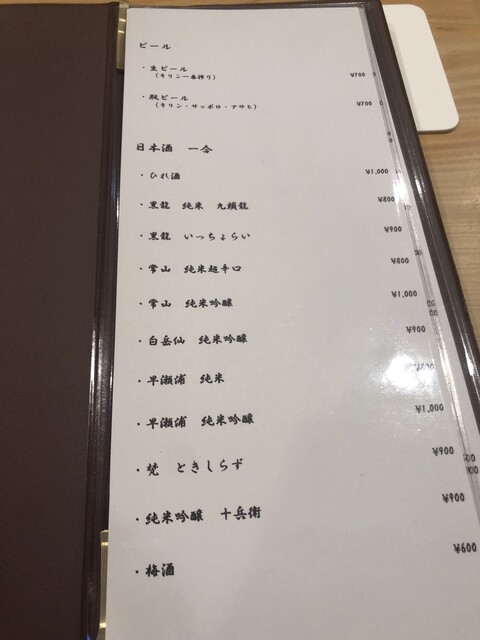 ビール
・生ビール ¥700
(キリン一番搾り)
・瓶ビール ¥700
(キリン・サッポロ・アサヒ)
日本酒 一合
・ひれ酒 ¥1,000
・黒龍 純米 九頭龍 ¥800
・黒龍 いっちょらい ¥900
・常山 純米超辛口 ¥800
・常山 純米吟醸 ¥1,000
・白岳仙 純米吟醸 ¥900
・早瀬浦 純米
・早瀬浦 純米吟醸 ¥1,000
・梵 ときしらず ¥900
・純米吟醸 十兵衛 ¥900
・梅酒 ¥600